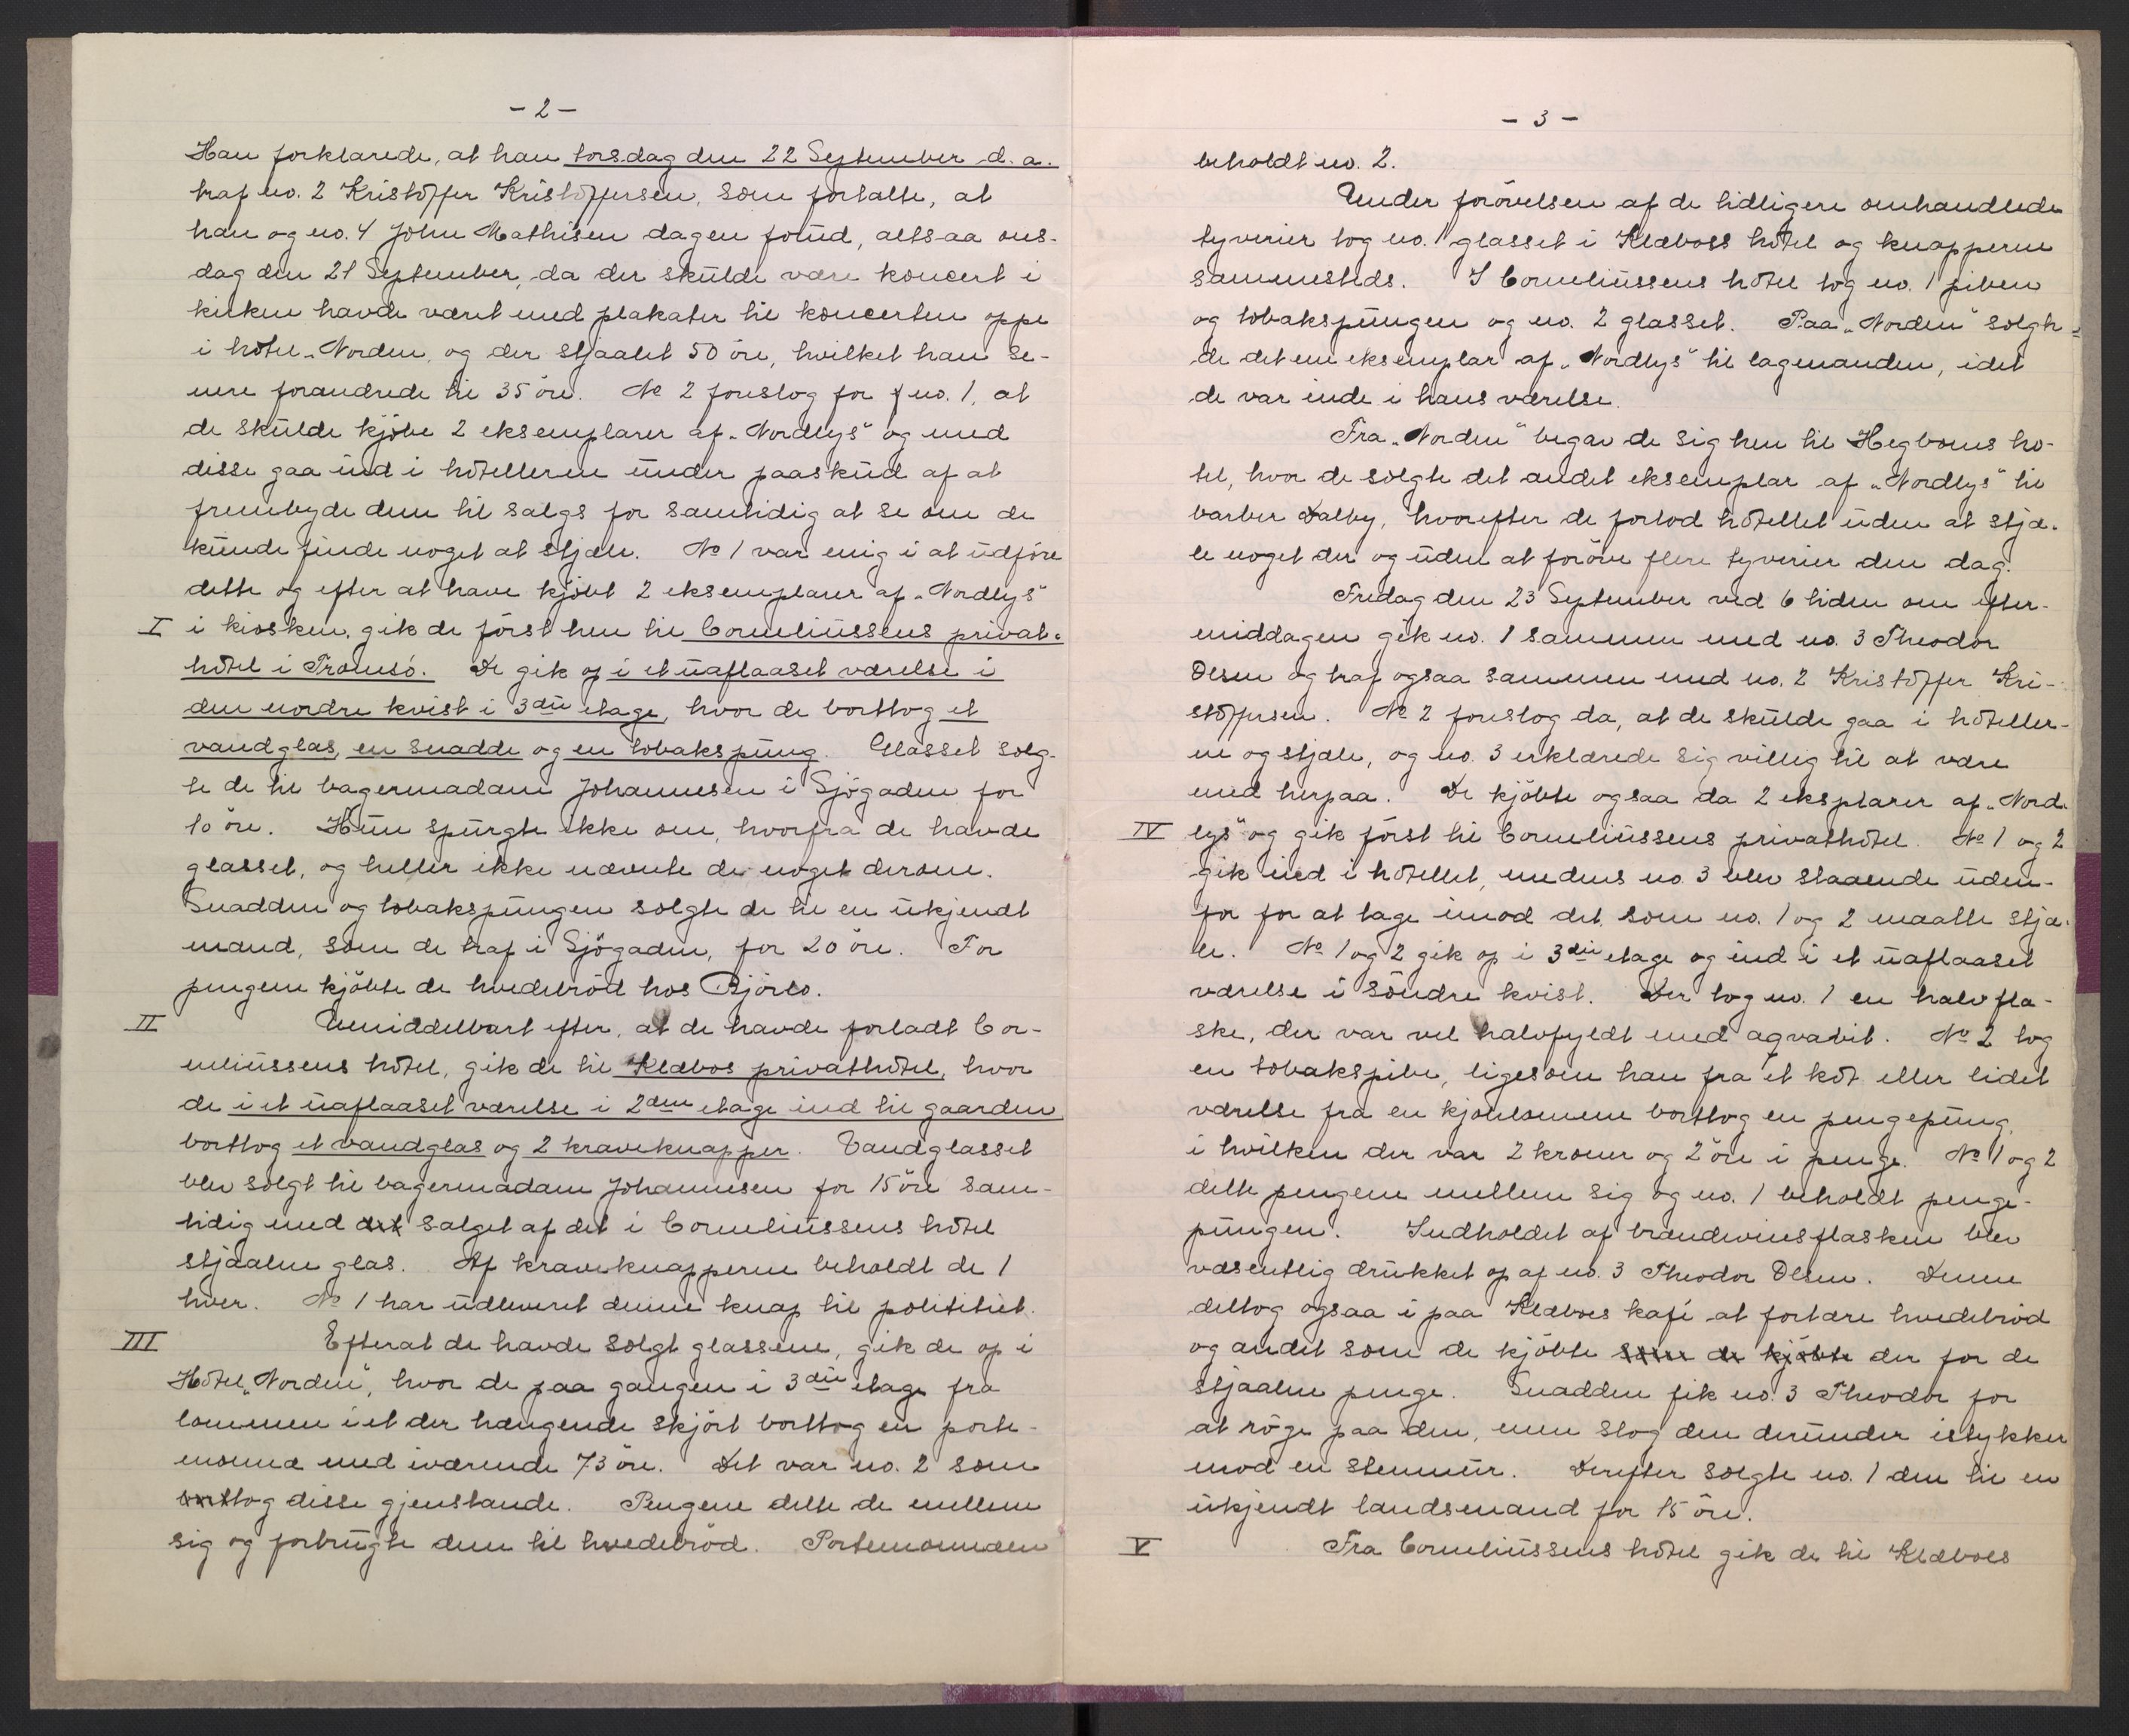 - 2 -
Han forklarede, at han torsdag den 22 September d. a.
traf no. 2 Kristoffer Kristoffersen, som fortalte, at
han og no. 4 John Mathisen dagen forud, altsaa ons-
dag den 21 September, da der skulde være koncert i
kirken havde været med plakater til koncerten oppe
i hotel „Norden, og der stjaalet 50 öre, hvilket han se-
nere forandrede til 35 öre. No 2 foreslog for no. 1, at
de skulde kjöbe 2 eksemplarer af „Nordlys" og med
disse gaa ind i hotellerne under paaskud af at
frembyde dem til salgs for samtidig at se om de
kunde finde noget at stjæle. No 1 var enig i at udföre
dette og efter at have kjöbt 2 eksemplarer af „Nordlys"
I i kiosken, gik de först hen til Corneliussens privat-
hotel i Tromsö. De gik op i et uaflaaset værelse i
den nordre kvist i 3die etage, hvor de borttog et
vandglas, en snadde og en tobakspung. Glasset solg-
te de til bagermadam Johannesen i Sjögaden for
10 öre. Hun spurgte ikke om, hvorfra de havde
glasset, og heller ikke nævnte de noget derom.
Snadden og tobakspungen solgte de til en ukjendt
mand, som de traf i Sjögaden, for 20 öre. For
pengene kjöbte de hvedebröd hos Björlo.
II Umiddelbart efter, at de havde forladt Cor-
neliussens hotel, gik de til Klæbos privathotel, hvor
de i et uaflaaset værelse i 2den etage ind til gaarden
borttog et vandglas og 2 kraveknapper. Vandglasset
blev solgt til bagermadam Johannesen for 15 öre sam-
tidig med det salget af det i Corneliussens hotel
stjaalne glas. Af kraveknapperne beholdt de 1
hver. No 1 har udleveret denne knap til polititiet.
III Efterat de havde solgt glassene, gik de op i
Hotel „Norden", hvor de paa gangen i 3die etage fra
lommen i et der hængende skjört borttog en porte-
monnæ med iværende 73 öre. Det var no. 2 som
borttog disse gjenstande. Pengene delte de mellem
sig og forbrugte dem til hvedebröd. Portemonnæen
- 3 -
beholdt no. 2.
Under forövelsen af de tidligere omhandlede
tyverier tog no. 1 glasset i Klæboes hotel og knapperne
sammesteds. I Corneliussens hotel tog no. 1 piben
og tobakspungen og no. 2 glasset. Paa „Norden" solgte
de det ene eksemplar af „Nordlys" til lagmanden, idet
de var inde i hans værelse.
Fra „Norden" begav de sig hen til Hegboms ho-
tel, hvor de solgte det andet eksemplar af „Nordlys" til
barber Dalby, hvorefter de forlod hotellet uden at stjæ-
le noget der og uden at foröve flere tyverier den dag.
Fredag den 23 September ved 6 tiden om efter-
middagen gik no. 1 sammen med no. 3 Theodor
Olsen og traf ogsaa sammen med no. 2 Kristoffer Kri-
stoffersen. No 2 foreslog da, at de skulde gaa i hoteller-
ne og stjæle, og no. 3 erklærede sig villig til at være
med herpaa. De kjöbte ogsaa da 2 eksplarer af „Nord-
IV lys" og gik först til Corneliussens privathotel. No 1 og 2
gik ind i hotellet, medens no. 3 blev staaende uden-
for for at tage imod det, som no. 1 og 2 maatte stjæ-
le. No 1 og 2 gik op i 3die etage og ind i et uaflaaset
værelse i söndre kvist. Der tog no. 1 en halvfla-
ske, der var vel halvfyldt med aqvavit. No 2 tog
en tobakspibe, ligesom han fra et kot eller lidet
værelse fra en kjolelomme borttog en pengepung,
i hvilken der var 2 kroner og 2 öre i penge. No 1 og 2
delte pengene mellem sig og no. 1 beholdt penge-
pungen. Indholdet af brændevinsflasken blev
væsentlig drukket op af no. 3 Theodor Olsen. Denne
deltog ogsaa i paa Klæboes kafé at fortære hvedebröd
og andet som de kjöbte som de kjöbte der for de
stjaalne penge. Snadden fik no. 3 Theodor for
at röge paa den, men slog den derunder istykker
mod en stenmur. Derefter solgte no. 1 den til en
ukjendt landsmand for 15 öre.
V Fra Corneliussens hotel gik de til Klæboes